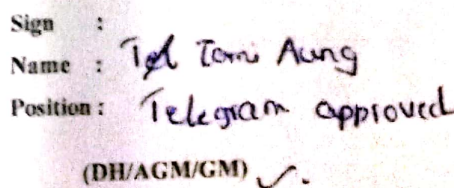 Sign :
Name : Tel Tomi Aung
Position : Telegram approved
(DH/AGM/GM) ✓.